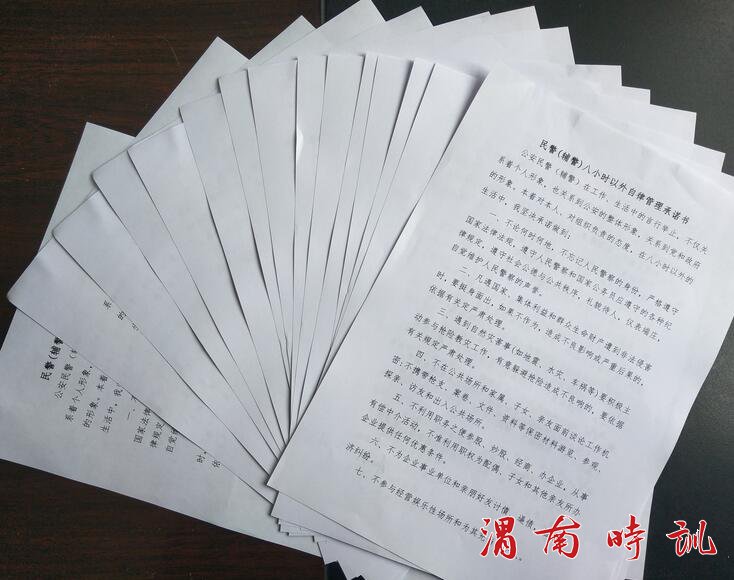 民警(辅警)八小时以外自律管理承诺书
公安民警（辅警）在工作、生活中的言行举止，不仅关
系着个人形象，也关系到公安的整体形象，关系到党和政府
的形象。本着对本人、对组织负责的态度，在八小时以外的
生活中，我坚决承诺做到：
一、不论何时何地，不忘记人民警察的身份，严格遵守
国家法律法规，遵守人民警察和国家公务员应遵守的各种纪
律规定，遵守社会公德与公共秩序，礼貌待人，仪表端庄，
自觉维护人民警察的声誉。
二、凡遇国家、集体利益和群众生命财产遭到非法侵害
时，要挺身而出，如果不作为，造成不良影响或严重后果的，
依据有关定严肃处理。
三、遇到自然灾害事(如地震、水灾、车祸等)要积极主
动参与抢险救灾工作，有意躲避抢险造成不良响的，要依据
有关规定严肃处理。
四、不在公共场所和家属、子女、亲友面前谈论工作机
密;不携带枪支、案卷、文件、资料等保密材料游览、参观、
探亲、访友和出入公共场所。
五、不利用职务之便参股、炒股、经商、办企业，从事
有偿中介活动，不准利用职权为配偶、子女和其他亲友所办
企业提供任何优惠条件。
六、不为企业事业单位和亲朋好友讨债、逼债
济纠纷。
七、不参与经营娱乐性场所和为其充
民警(辅警
公安民警（辅
系着个人形象，
的形象。本着
生活中，我
一、
国家法律
律规定
自觉
时，
依
渭南時訊